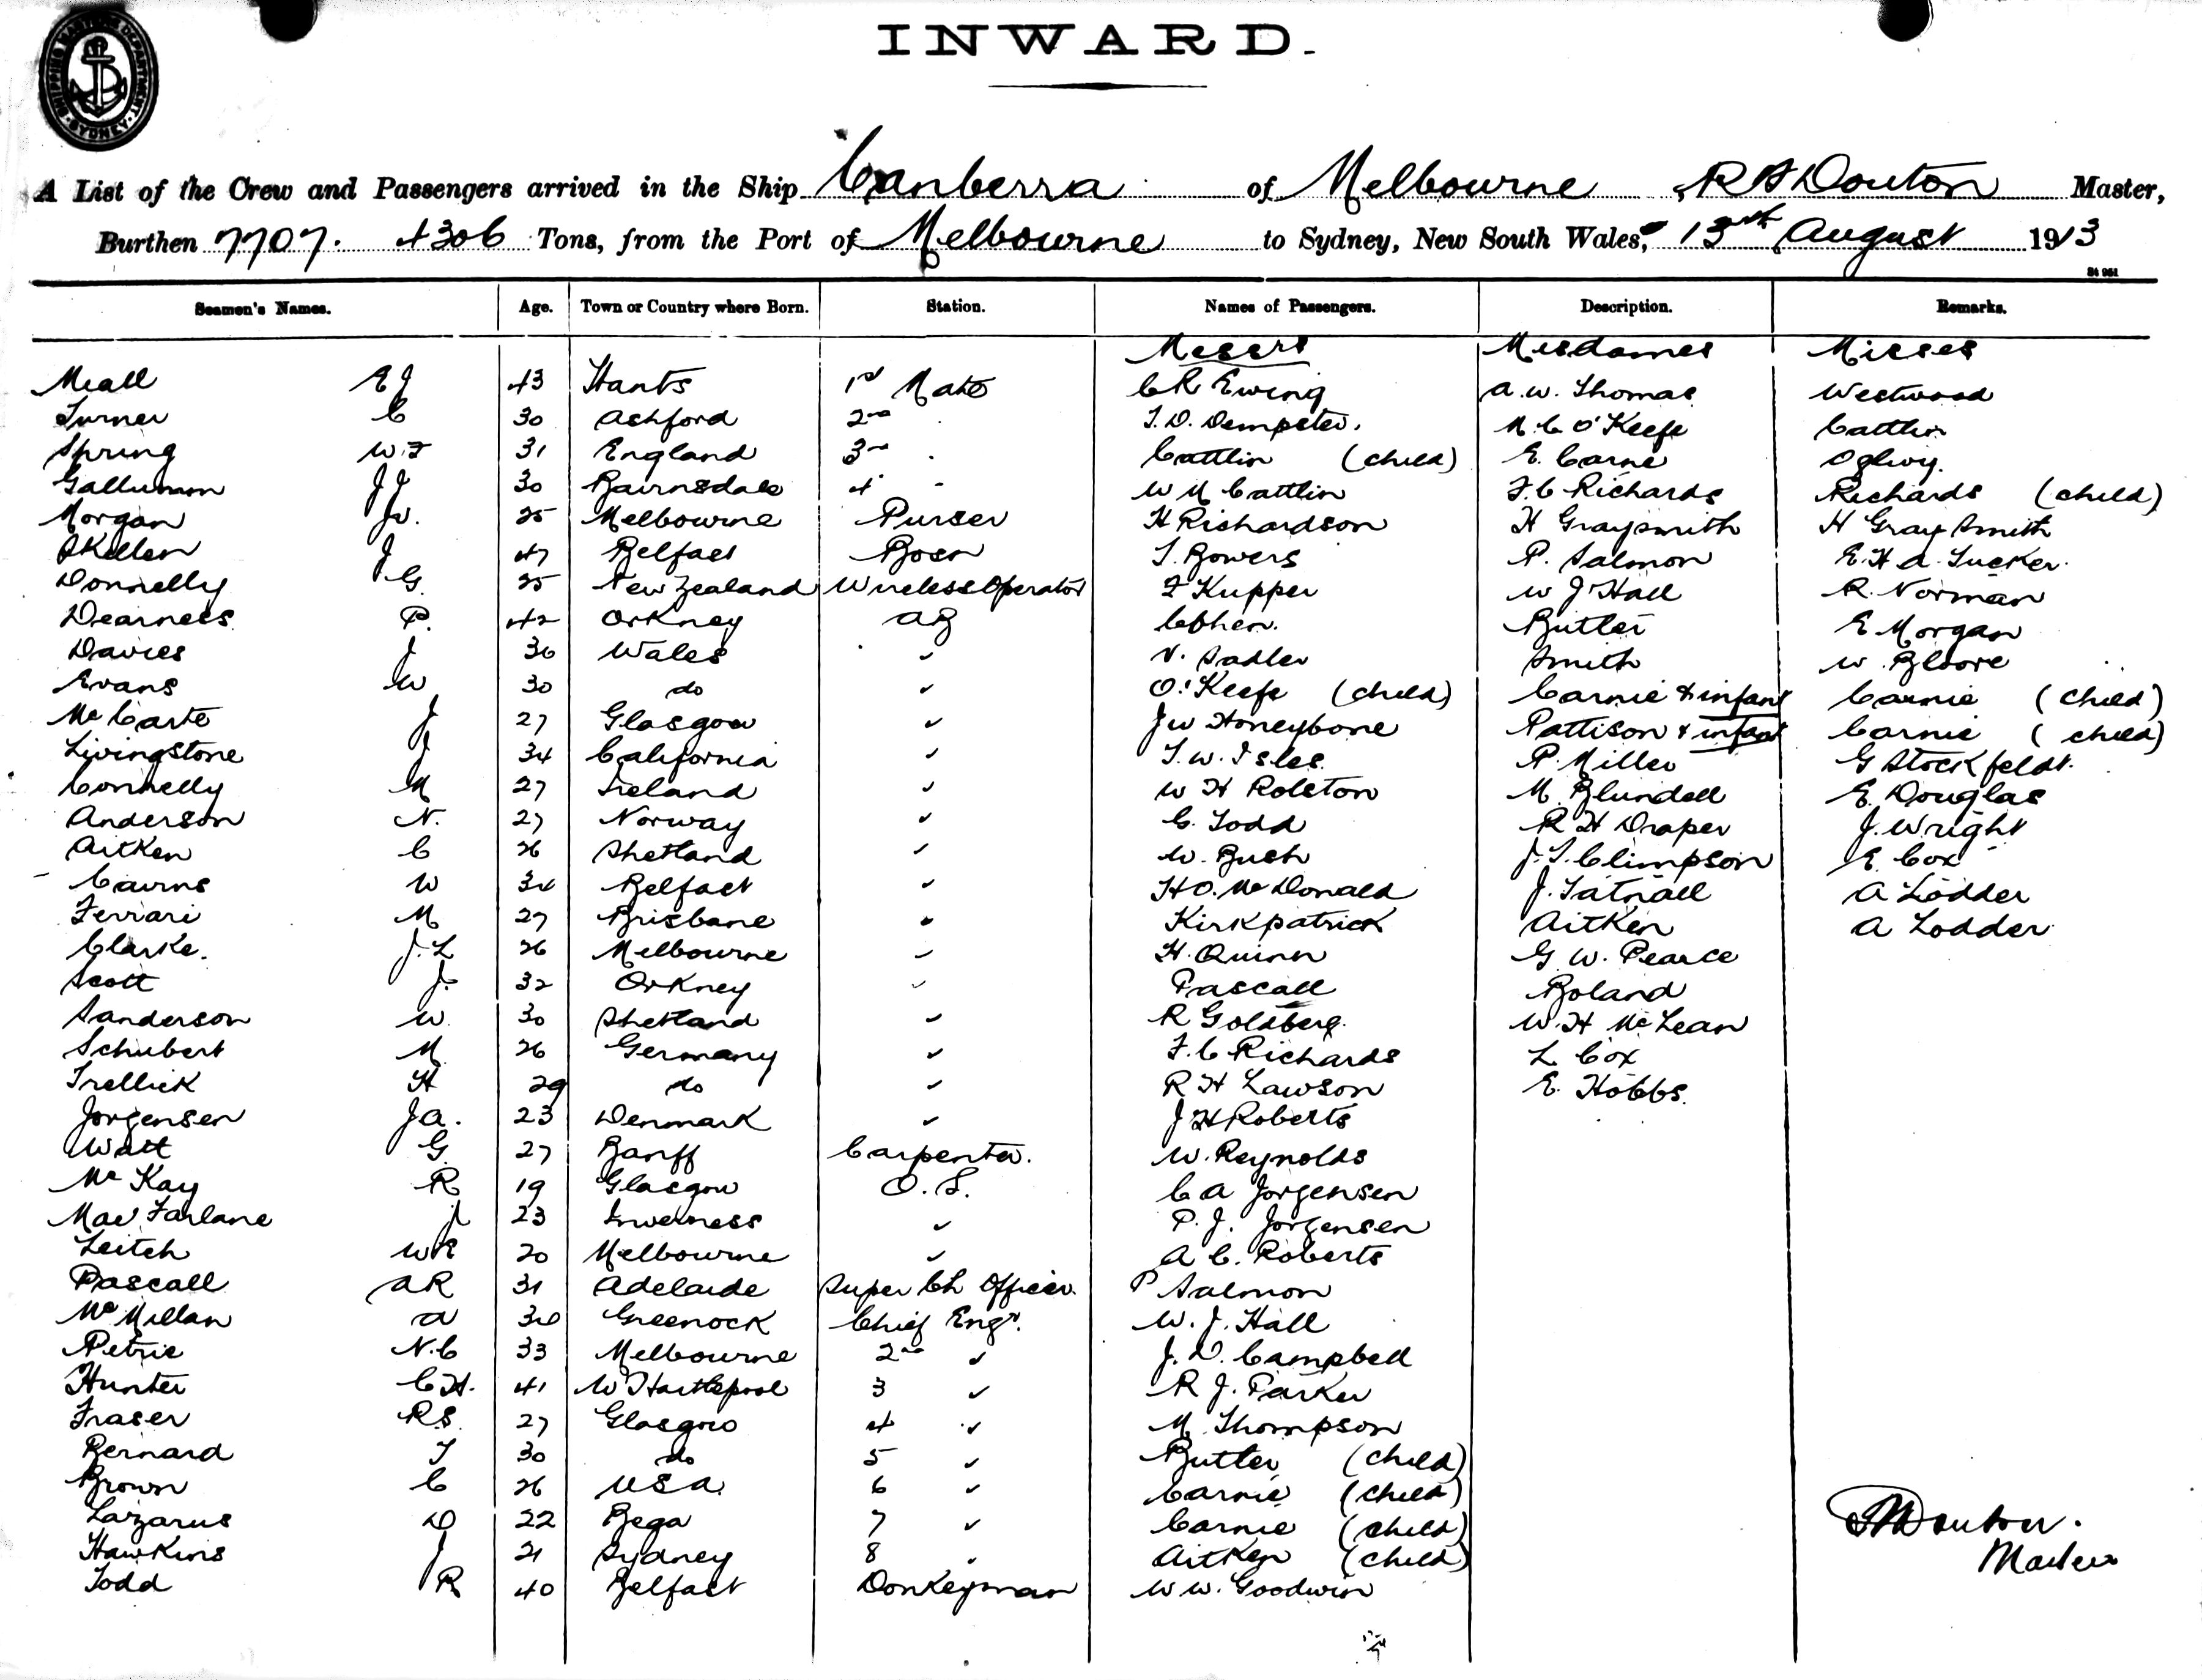 SHIPPING MASTER'S DEPARTMENT. SYDNEY
INWARD.
A List of the Crew and Passengers arrived in the Ship Canberra of Melbourne, R S Douton Master,
Burthen 7707. 4306 Tons, from the Port of Melbourne to Sydney, New South Wales, 13th August 1913
Seamen's Names. Age. Town or Country where Born. Station. Names of Passengers. Description. Remarks.
Messrs Mesdames Misses
Meall E J 43 Hants 1st Mate C R Ewing A. W. Thomas Westwood
Turner C 30 Ashford 2nd T. D. Dempster. M. C O'Keefe Cattlin
Spring W. F 31 England 3rd Cattlin (child) E. Carne Ogilvy.
J J 30 Bairnsdale 4 W M Cattlin F. C Richards Richards (child)
Morgan J W. 25 Melbourne Purser H Richardson H Graysmith H Gray Smith
Skillen J 47 Belfast Bosn T. Bowers P. Salmon E. H A. Tucker.
Donnelly G. 25 New Zealand Wireless Operator F Kupper W J Hall R. Norman
Dearness P. 42 Orkney AB Cohen. Butler E Morgan
Davies J 36 Wales ✓ V. Sadler Smith W.
Evans W 30 do ✓ O'Keefe (child) Carnie & infant Carnie (child)
Mc Carte J 27 Glasgow ✓ J W Honeybone Pattison & infant Carnie (child)
Livingstone J 34 California ✓ T. W. Isles P. Miller G Stockfeldt.
Connelly M 27 Ireland ✓ W H Rolston M. Blundell E. Douglas
Anderson N. 27 Norway ✓ C. Todd R H Draper J. Wright
Aitken C 26 Shetland ✓ W. Bush J. T. Climpson E. Cox
Cairns W 34 Belfast ✓ H O. Mc Donald J. Tatnall A Lodder
Ferrari M 27 Brisbane ✓ Kirkpatrick Aitken A Lodder
Clarke. J. L 26 Melbourne ✓ H. Quinn G. W. Pearce
Scott J. 32 Orkney ✓ Pascall Boland
Sanderson W. 30 Shetland ✓ R Goldberg. W. H Mc Lean
Schubert M 26 Germany ✓ F. C Richards L Cox
Trellick H 29 do ✓ R H Lawson E. Hobbs.
Jorgensen J A. 23 Denmark ✓ J H Roberts
Watt G. 27 Banff Carpenter. W. Reynolds
Mc Kay R 19 Glasgow O. S. C A Jorgensen
Mac Farlane J 23 Inverness ✓ P. J. Jorgensen
Leitch W E 20 Melbourne ✓ A C. Roberts
Pascall A R 31 Adelaide Super Ch Officer. P Salmon
Mc Millan A Greenock Chief Engr. W. J. Hall
Petrie N. C 33 Melbourne 2nd ✓ J. D. Campbell
Hunter C H. 41 W Hartlepool 3 ✓ R J. Parker
Fraser R S. 27 Glasgow 4 ✓ M. Thompson
Bernard T 30 do 5 ✓ Butler (child)
Brown C 26 USA. 6 ✓ Carnie (child)
Lazarus D 22 Bega 7 ✓ Carnie (child)
Hawkins J 21 Sydney 8 ✓ Aitken (child)
Todd R 40 Belfast Donkeyman W W. Goodwin
Douton.
Master